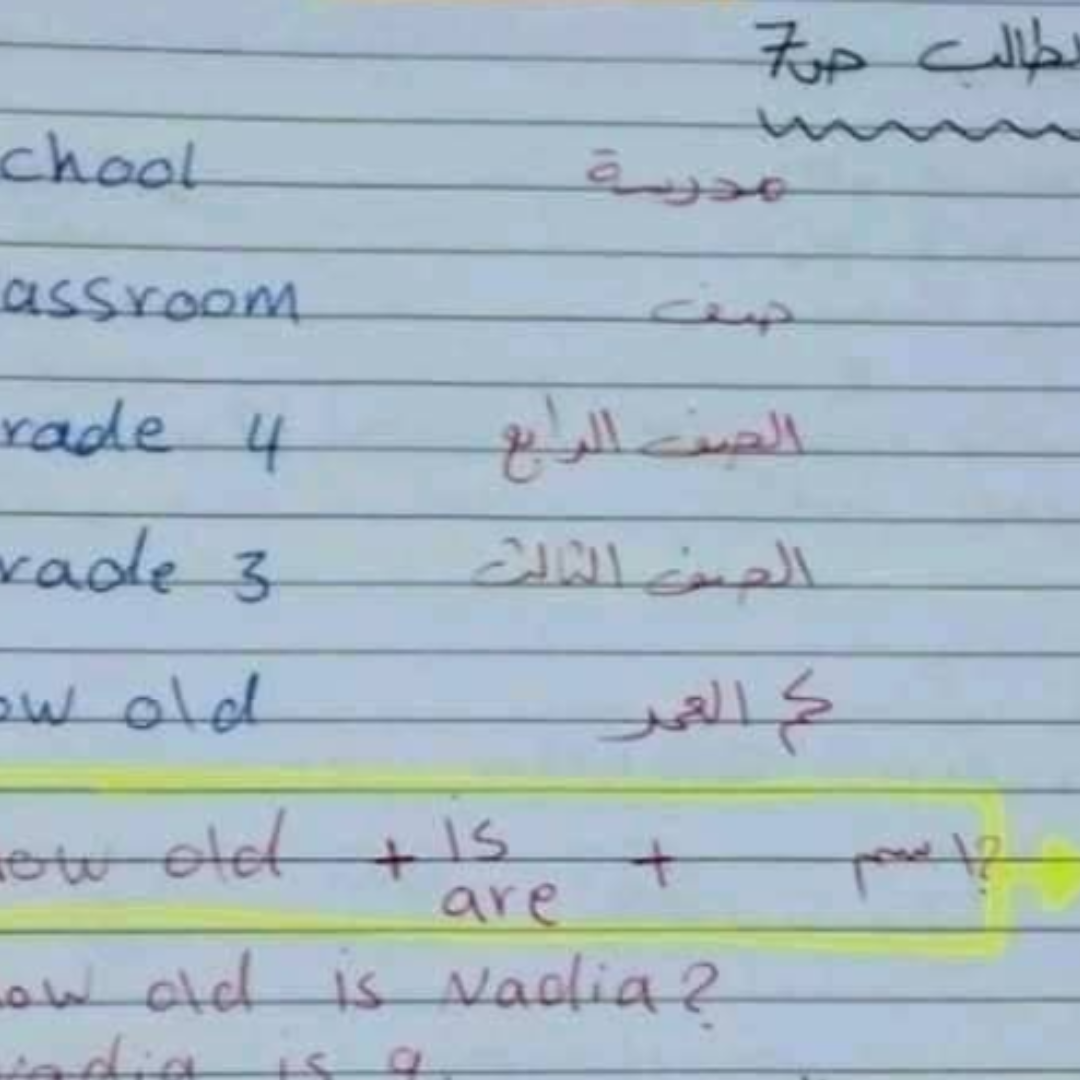 لطالب ص7
chool مدرسة
assroom صف
rade 4 الصف الرابع
rade 3 الصف الثالث
ow old كم العمر
ow old + is are + اسم?
ow old is Nadia?
adia is 9.